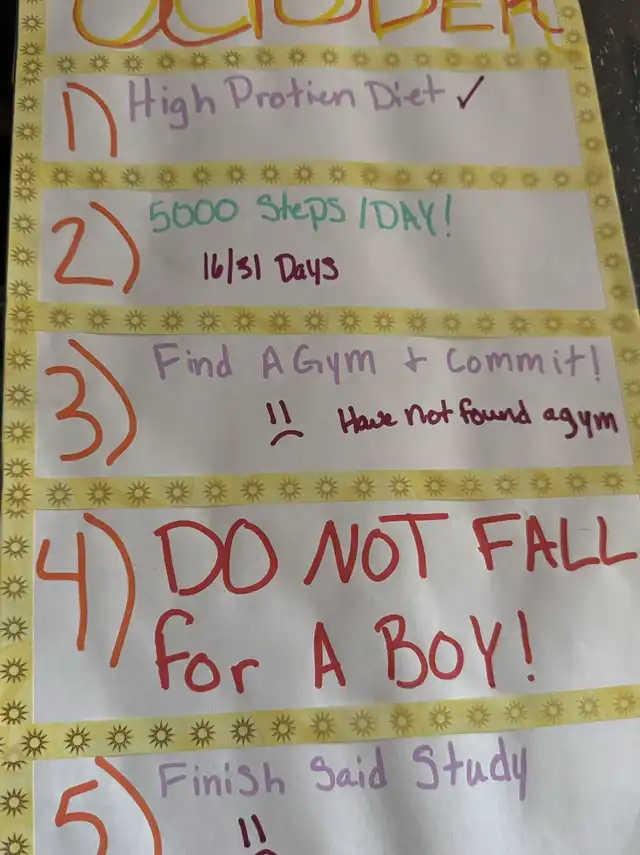 OCTOBER
1) High Protien Diet ✓
2) 5000 Steps /DAY!
16/31 Days
3) Find A Gym + Commit!
Have not found a gym
4) DO NOT FALL
for A BOY!
5) Finish Said Study